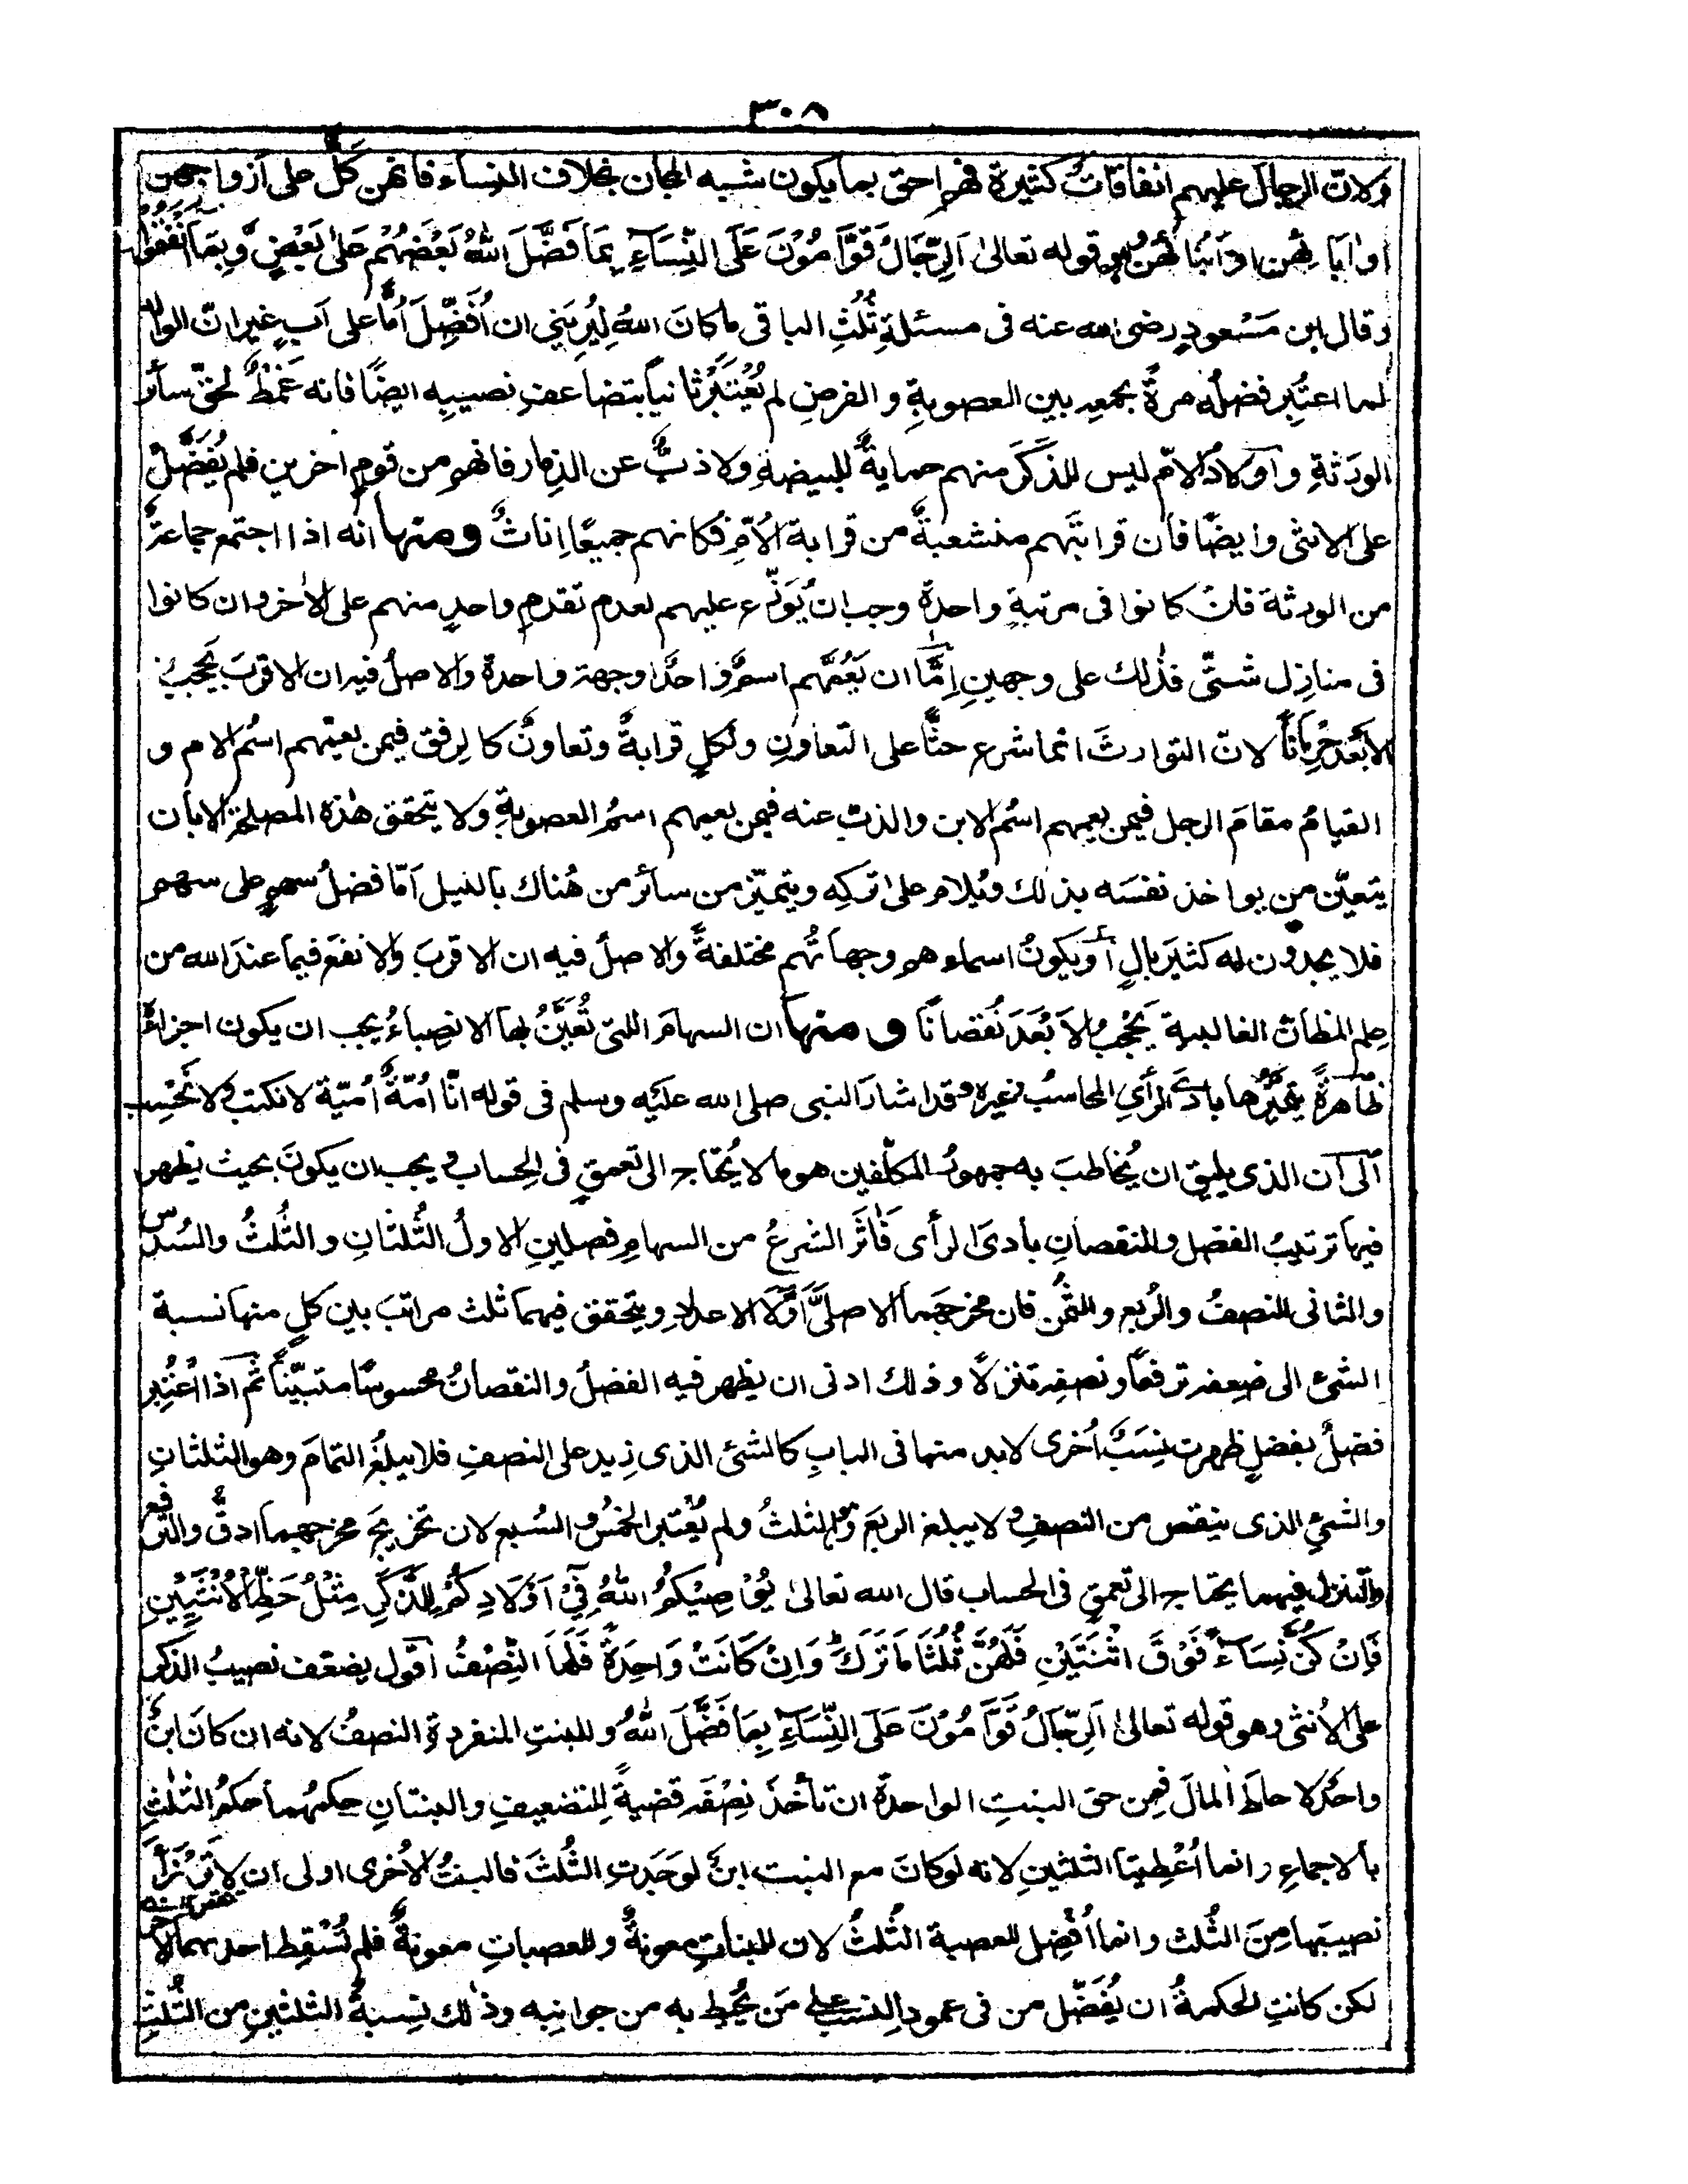 ٣٠٨
ولانّ الرجالَ عليهم انفاقاتٌ كثيرة فهم احق بما يكون شبه المجان بخلاف النساء فانهن كَلٌّ على أزواجهن
او اٰبائهن او أبنائهن وهو قوله تعالىٰ اَلرِّجَالُ قَوَّامُوْنَ عَلَى النِّسَآءِ بِمَا فَضَّلَ اللّٰهُ بَعْضَهُمْ عَلىٰ بَعْضٍ وَّبِمَا اَنْفَقُوْا
وقال ابن مَسْعودٍ رضى الله عنه فى مسئلةِ ثُلُثِ الباقى ما كانَ اللهُ لِيُرِيَنِي ان اُفَضِّلَ اُمًّا على اَبٍ غير انّ الوالد
لما اعتُبِر فضلُه مرةً بجمعِه بين العصوبةِ و الفرضِ لم يُعْتَبَرْ ثانياً بتضاعفِ نصيبِه ايضًا فانه غَمْطٌ لحقّ سائر
الورثةِ و اَولادُ الامّ ليس للذكَرِ منهم حمايةٌ للبيضةِ ولا ذبٌّ عن الذِمار فانهم من قومٍ اخرين فلم يُفَضَّلْ
على الانثى وايضًا فان قرابتَهم منشعبةٌ من قرابة الاُمّ فكانهم جميعًا اِناثٌ ومنها انه اذا اجتمع جماعةٌ
من الورثة فان كانوا فى مرتبةٍ واحدة وجب ان يُوَزَّع عليهم لعدم تقدمِ واحدٍ منهم على الاٰخر وان كانوا
فى منازِل شتّى فذٰلك على وجهينِ اِمَّا ان يَعُمَّهم اسمٌ واحدٌ او جهة واحدة والاصلُ فيه ان الاقربَ يَحْجُبُ
الاَبْعَدَ حِرْمانًا لانّ التوارثَ انما شرع حثًّا على التعاونِ ولكلٍ قرابةٌ وتعاونٌ كالرفق فيمن يعمّهم اسُم الام و
القيامُ مقامَ الرجل فيمن يعمهم اسُم الابن والذبّ عنه فيمن يعمهم اسمُ العصوبةِ ولا يتحقق هٰذه المصلحة الا بان
يتعيّن من يواخذ نفسَه بذٰلك ويُلام على تركِه ويتميّز من سائر من هُناك بالنيل اَمّا فضلُ سهمٍ على سهم
فلا يجدون له كثيرَ بالٍ أو يكونُ اسماءهم وجهاتُهم مختلفةً والاصلُ فيه ان الاقربَ والانفعَ فيما عندَ الله من
علم المظانّ الغالبية يَحْجُبُ الاَبْعَدَ نُقصانًا ومنها ان السهامَ اللتى تُعَيَّنُ بها الانصِباءُ يجب ان يكون اجزاءً
ظاهرةً يتميّزُها بادىَ الرأيِ المحاسبُ وغيره وقد اشارَ النبى صلى الله عليه وسلم فى قوله انّا اُمّةٌ اُمّيّة لا نكتب ولا نَحْسِب
اَلى اَن الذى يليق ان يُخاطبَ به جمهورُ المكلّفين هو ما لا يُحتاج الى تعمقٍ فى الحِساب و يجب ان يكونَ بحيث يظهر
فيها ترتيبُ الفضل والنقصانِ بادىَ الرأى فَاٰثَرَ الشرعُ من السهامِ فصلينِ الاولُ الثُّلثَانِ و الثُّلثُ والسُدُس
والثانى النصفُ والرُبع والثمُن فان مخرجَهما الاصليَّ اَوّلا الاعداد ويتحقق فيهما ثلث مراتبَ بين كلٍ منها نسبة
الشئ الى ضِعفه ترفعًا ونصفِه تنزلًا وذلك ادنى ان يظهر فيه الفضلُ والنقصانُ محسوسًا متبيّناً ثم اذا اعتُبِر
فضلٌ بفضلٍ ظهرت نِسَبٌ اُخرى لابد منها فى البابِ كالشئ الذى زِيد على النصفِ فلا يبلُغ التمامَ وهو الثلثانِ
والشئِ الذى ينقص من النصفِ ولا يبلغ الربعَ وهو الثلثُ ولم يُعتبر الخمُسُ والسُبع لان تخريجَ مخرجهما ادقُّ والترفع
والتنزل فيهما يحتاج الى تعمقٍ فى الحساب قال الله تعالىٰ يُوْصِيْكُمُ اللّٰهُ فِيْٓ اَوْلَادِكُمْ لِلذَّكَرِ مِثْلُ حَظِّ الْاُنْثَيَيْنِ
فَاِنْ كُنَّ نِسَآءً فَوْقَ اثْنَتَيْنِ فَلَهُنَّ ثُلُثَا مَا تَرَكَ وَاِنْ كَانَتْ وَاحِدَةً فَلَهَا النِّصْفُ اقول يضعّف نصيبُ الذكر
على الاُنثى وهو قوله تعالىٰ اَلرِّجَالُ قَوَّامُوْنَ عَلَى النِّسَآءِ بِمَا فَضَّلَ اللّٰهُ وللبنتِ المنفردةِ النصفُ لانه ان كانَ ابنٌ
واحدٌ لاحاطَ المالَ فمِن حق البنتِ الواحدة ان تأخذَ نِصْفَه قضيةً للتضعيفِ والبنتانِ حكمهُما حكمُ الثلاثِ
بالاجماعِ وانما اُعْطِيتا الثلثينِ لانه لو كانَ مع البنت ابنٌ لوَجَدتِ الثُلثَ فالبنتُ الاُخرى اولى ان لا تَرْزَأَ
نصيبَها مِنَ الثُلث وانما اُفْضِل للعصبة الثُلثُ لان للبناتِ معونةً وللعصباتِ معونةً فلم تُسْقِط احدٰهما الاخرى
لكن كانتِ الحكمةُ ان يُفَضَّل من فى عمودِ النسب على مَن يُحيط به من جوانبِه وذٰلك نِسبةُ الثلثينِ من الثُلثِ